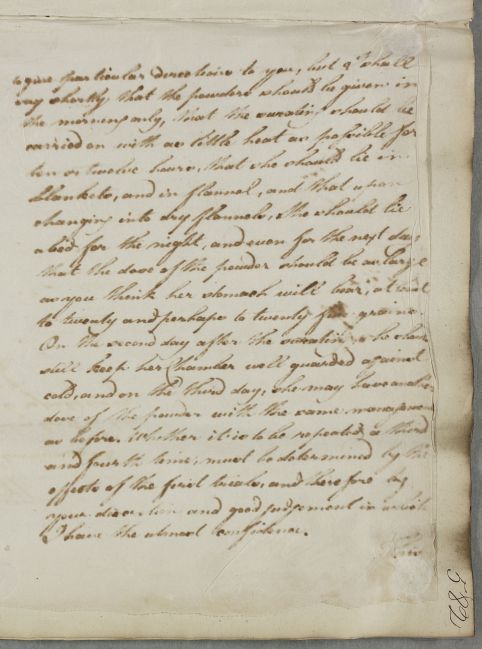 to give particular directions to you, but I shall
say shortly that the powders should be given in
the morning only, that the sweating should be
carried on with as little heat as possible for
ten or twelve hours, that she should lie in
blankets, and in flannel, and that upon
changing into dry flannels, she should lie
abed for the night, and even for the next day
that the dose of the powder should be as large
as you think her stomach will bear, at least
to twenty and perhaps to twenty five grains.
On the second day after the sweating, she shou
still keep her Chamber well guarded against
cold, and on the third day, she may have another
dose of the powder with the same management
as before. Whether it is to be repeated a third
and fourth time, must be determined by the
effects of the first trials, and therefore by
your discretion and good judgement in which
I have the utmost confidence.
582